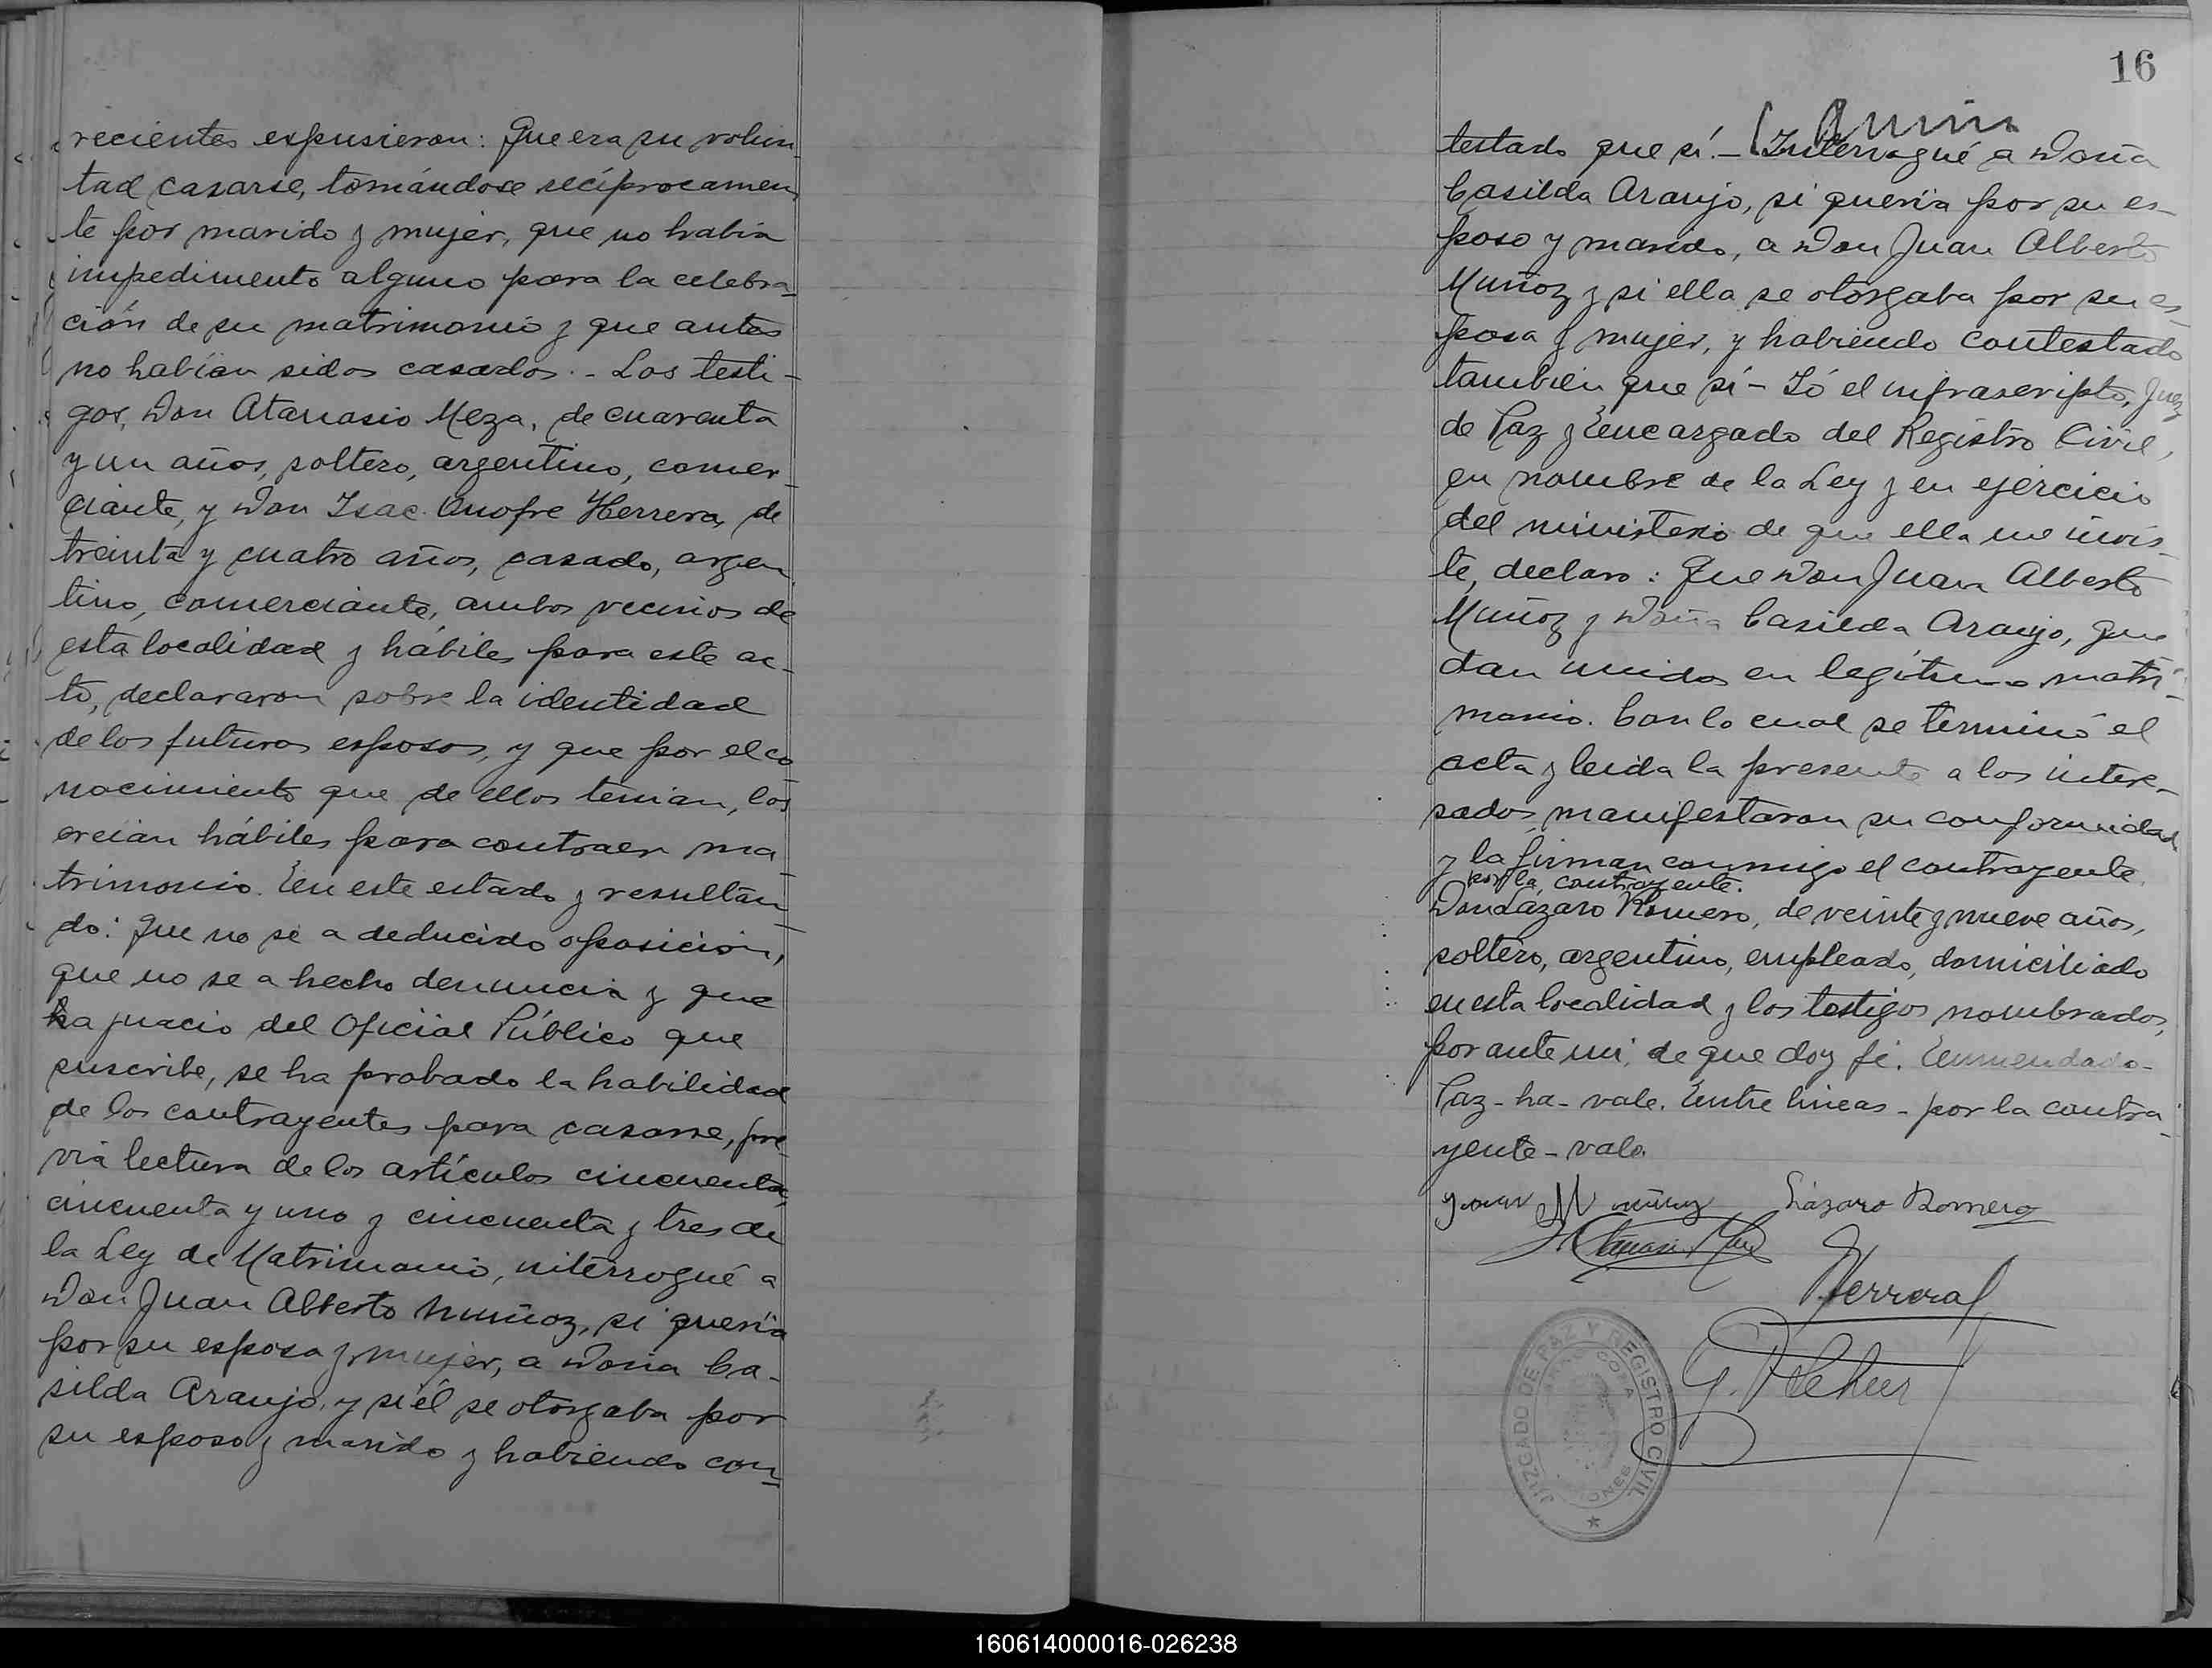 recientes expusieron: Que era su volun-
tad casarse, tomándose recíprocamen-
te por marido y mujer, que no habia
impedimento alguno para la celebra-
ción de su matrimonio y que antes
no habían sidos casados.- Los testi-
gos, Don Atanasio Meza, de cuarenta
y un años, soltero, argentino, comer-
ciante, y Don Isac Onofre Herrera, de
treinta y cuatro años, casado, argen
tino, comerciante, ambos vecinos de
esta localidad y hábiles para este ac-
to, declararon sobre la identidad
de los futuros esposos, y que por el co
nocimiento que de ellos tenian, los
creian hábiles para contraer ma
trimonio. En este estado y resultan-
do: Que no se a deducido oposición,
que no se a hecho denuncia y que
ha juacio del Oficial Público que
suscribe, se ha probado la habilidad
de los contrayentes para casarse, pre
via lectura de los artículos cincuenta,
cincuenta y uno y cincuenta y tres de
la Ley de Matrimonio, interrogué a
Don Juan Alberto Muñoz, si quería
por su esposa y mujer, a Doña Ca-
silda Araujo, y si él se otorgaba por
su esposo y marido y habiendo con-
16
testado que sí.- Interrogué a Doña
Casilda Araujo, si quería por su es-
poso y marido, a Don Juan Alberto
Muñoz y si ella se otorgaba por su es-
posa y mujer, y habiendo contestado
también que sí - Yó el infrascripto, Juez
de Paz y Encargado del Registro Civil,
en nombre de la Ley y en ejercicio
del ministerio de que ella me invis-
te, declaro: Que Don Juan Alberto
Muñoz y Doña Casilda Araujo, que
dan unidos en legítimo matri-
monio. Con lo cual se terminó el
acta y leida la presente a los intere-
sados, manifestaron su conformidad
y la firman conmigo el contrayente
por la contrayente.
Don Lázaro Romero, de veinte y nueve años,
soltero, argentino, empleado, domiciliado
en esta localidad y los testigos nombrados,
por ante mi, de que doy fé. Enmendado-
Paz-ha-vale. Entre lineas - por la contra-
yente - vale.
Juan M muñoz Lázaro Romero
Atanasio Meza
Herrera
G.
JUZGADO DE PAZ Y REGISTRO CIVIL
160614000016-026238